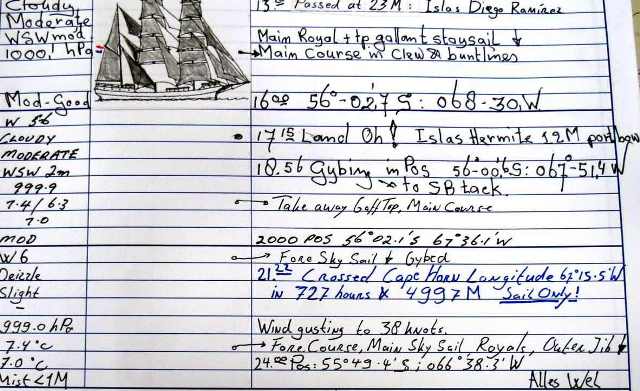 Cloudy
Moderate
WSW mod.
1000,1 hPa
13 Passed at 23M: Islas Diego Ramirez
Main Royal + tp gallant staysail ↓
Main Course in Clew & buntlines
Mod-Good
1600 56°-02,7 S: 068-30,W
W 56
CLOUDY
MODERATE
WSW 2m
999.9
7.4/6.3
7.0
1715 Land Oh! Islas Hermite 12M port bow
18.56 Gybing in Pos 56-00,6S: 067°-51,4W
to SB tack.
Take away GaffTop, Main Course
MOD
W6
Drizzle
Slight
-
2000 POS 56°02.1'S 67°36.1'W
Fore Sky Sail ↓ Gybed
21.22 Crossed Cape Horn Longitude 67°15.5'W
in 727 hours & 4997M Sail Only!
999.0 hPa
7.4°C
7.0°C
Mist <1M
Wind gusting to 38 knots.
Fore Course, Main Sky Sail, Royals, Outer Jib ↓
24.00 Pos: 55°49.4'S; 066°38.3'W
Alles Wel